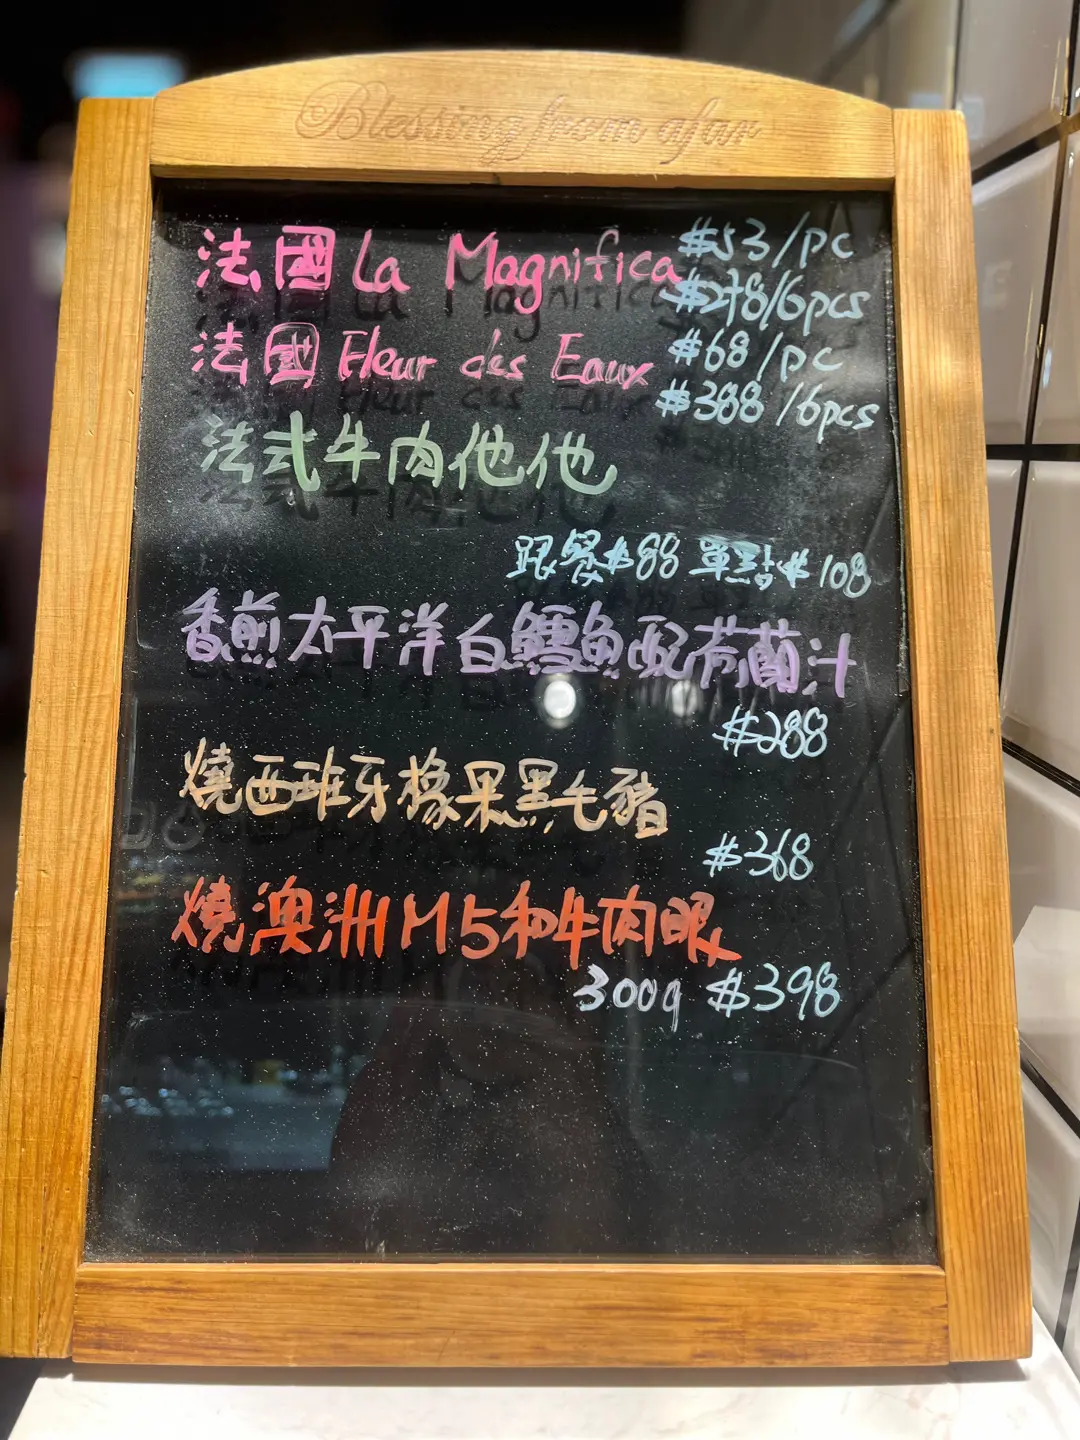 Blessing from afar
法國 La Magnifica $53/pc
$278/6pcs
法國 Fleur des Eaux $68/pc
$388/6pcs
法式牛肉他他
跟餐$88 單點$108
香煎太平洋白鱈魚配荷蘭汁
$288
燒西班牙橡果黑毛豬
$368
燒澳洲M5和牛肉眼
300g $398